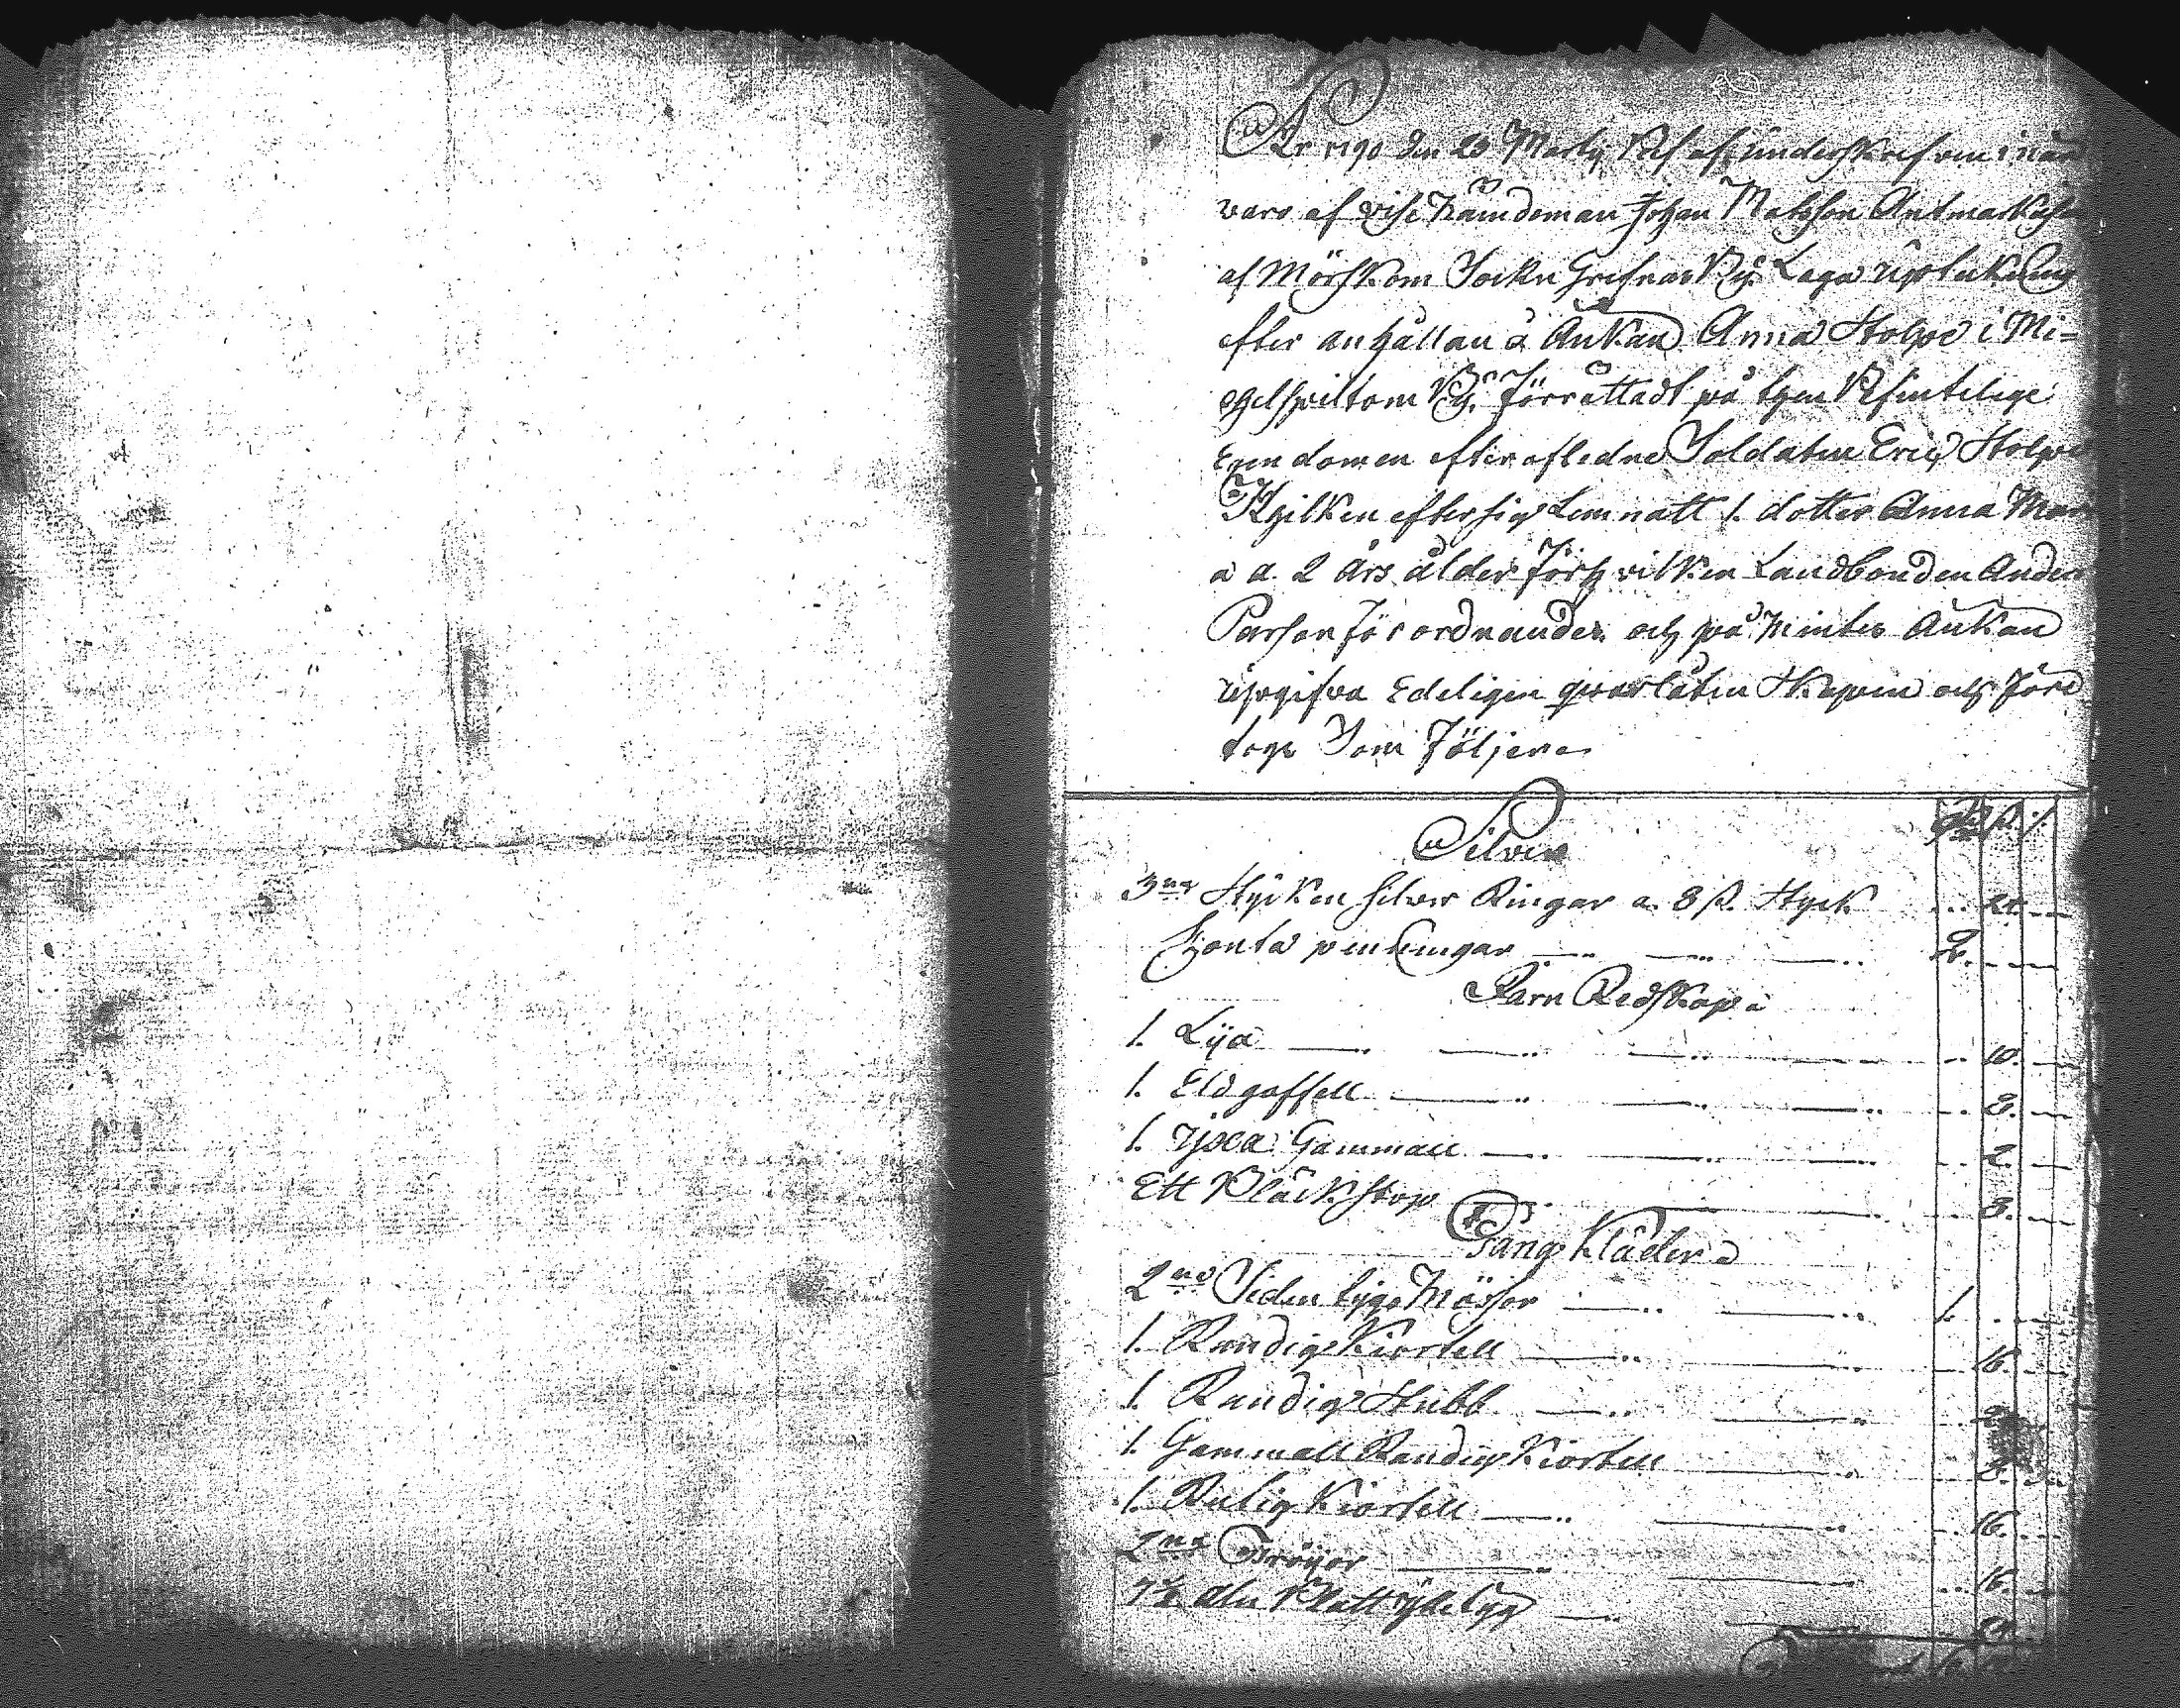 År 1790 den 20 Martij blef af underskrefven i när
varo af vise Nämdeman Johan Matsson Antmarkuhs
af Mörskom Sockn Grefnas By. Laga upteckning
efter anhållan a Änkan Anna Stolpe i Mi-
chelspiltom By. Förrättadt på then Befintelige
Egendomen efter afledne Soldaten Eric Stolpe
Hvilken efter sig Lemnatt 1. dotter Anna Mar
a a. 2 års ålder För hvilken Landbonden Anders
Parson förordnandes och påminter Änkan
uppgifva Edeligen qvarlåtenskapen och före
togs Som Följer
Silver
3ne Stycken Silver Ringar a. 8 ß. Styck 24
Conta penningar 2.
Järn Redskap
1. Lya 10.
1. Eldgaffell 8.
1. yxa Gammall 2.
Ett Bläck stop 8.
Gång Kläder
2ne Siden tygs Mössor 1.
1. Randig Kiortell 16.
1. Randig Stubb
1. Gammall Randig Kiortell 8.
1. Rulig Kiortell 16.
2ne Tröijor 16.
aln